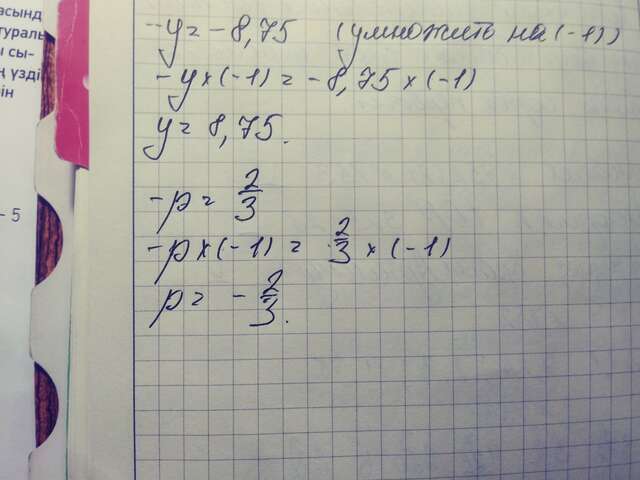 асынд
тураль
ы сы-
ң үзді
рін
– 5
-y = -8,75 (умножить на (-1))
-y × (-1) = -8,75 × (-1)
y = 8,75.
-p = 2/3
-p × (-1) = 2/3 × (-1)
p = - 2/3.